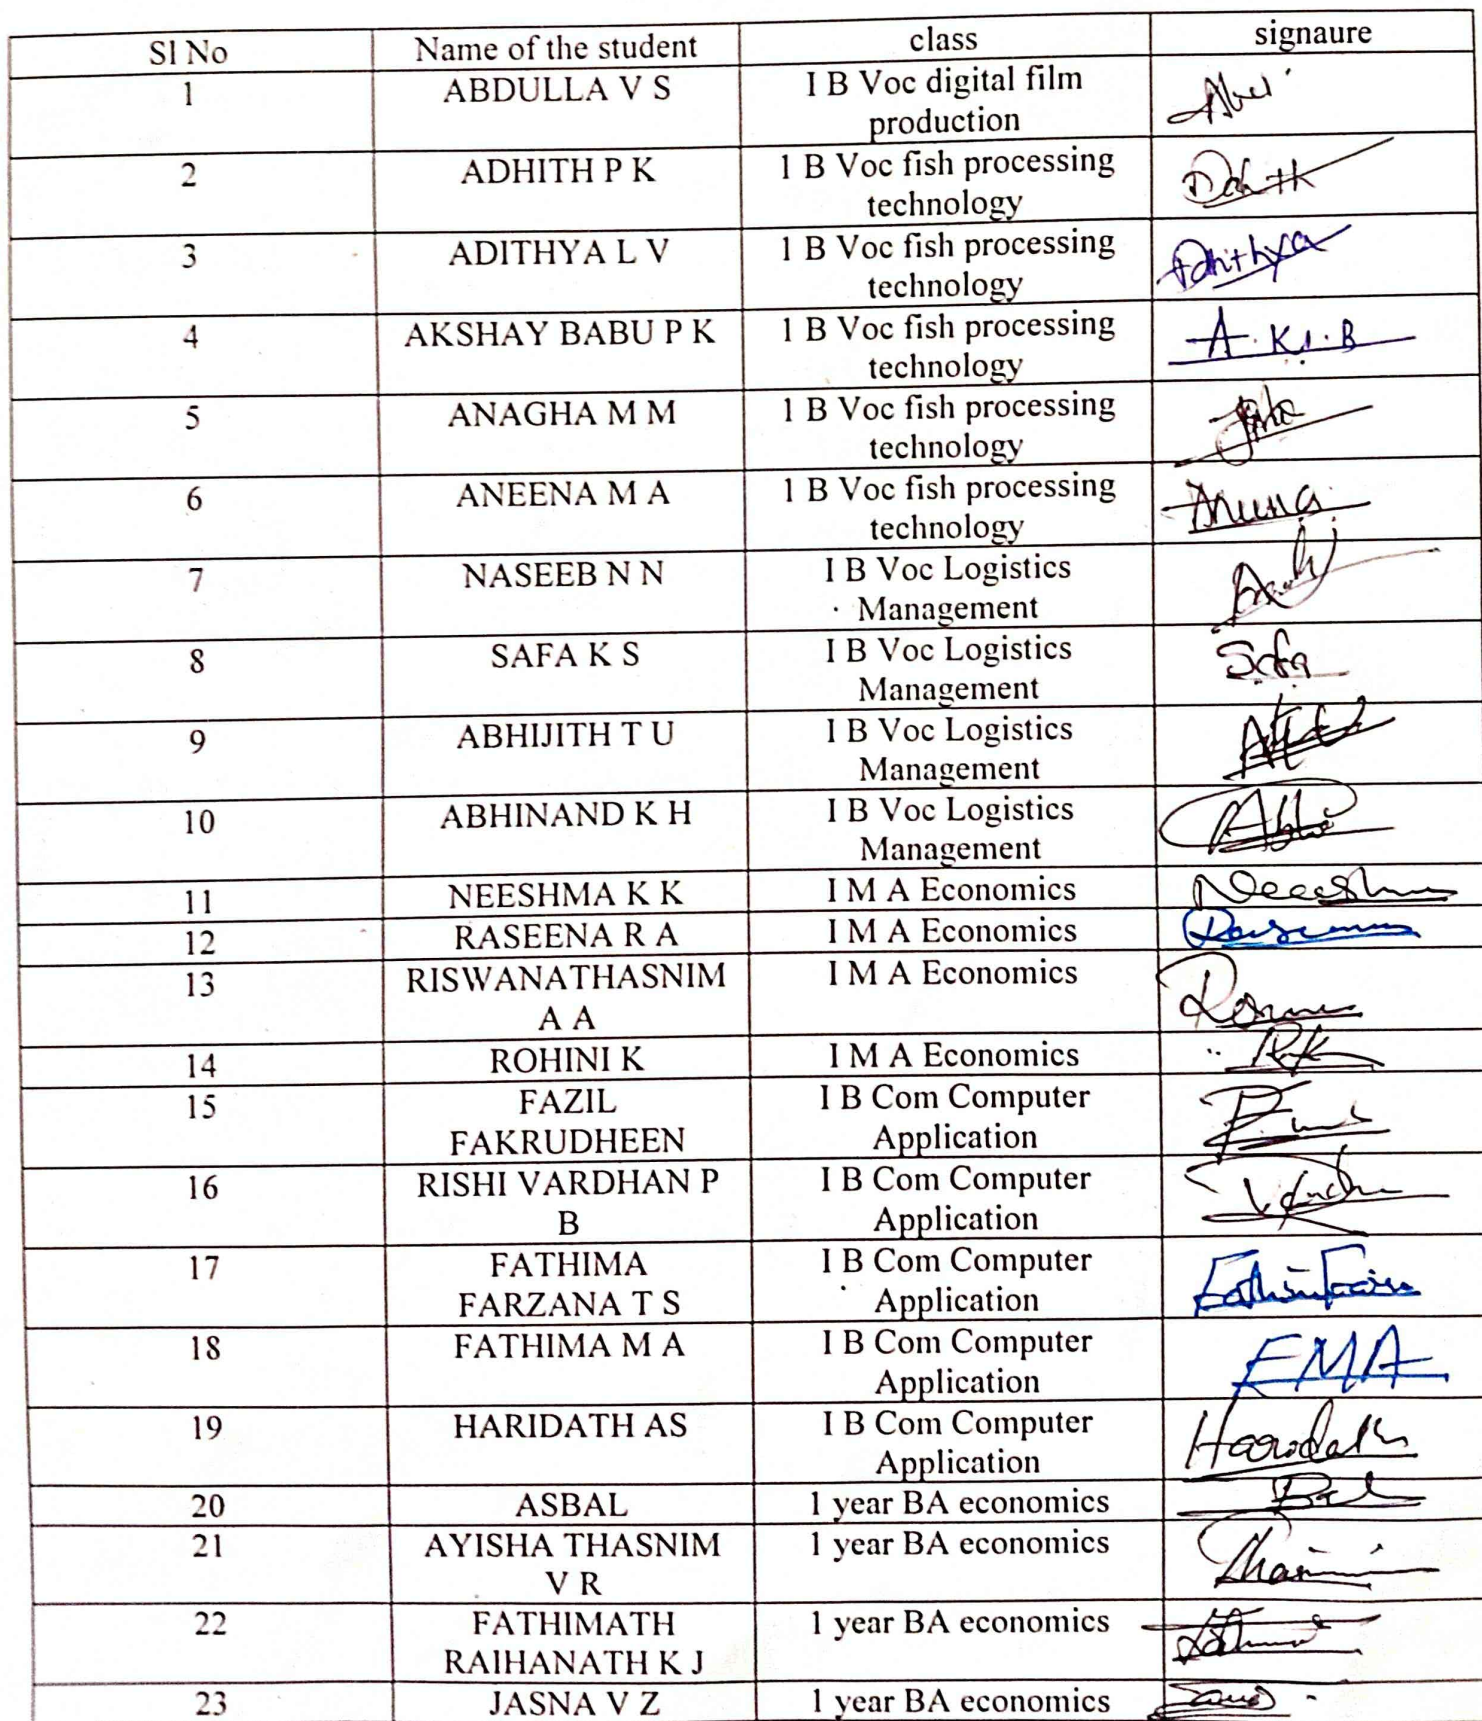 Sl No Name of the student class signaure
1 ABDULLA V S I B Voc digital film
production
2 ADHITH P K 1 B Voc fish processing
technology
3 ADITHYA L V 1 B Voc fish processing Adhithya
technology
4 AKSHAY BABU P K 1 B Voc fish processing
technology
5 ANAGHA M M 1 B Voc fish processing
technology
6 ANEENA M A 1 B Voc fish processing
technology
7 NASEEB N N I B Voc Logistics
Management
8 SAFA K S I B Voc Logistics Safa
Management
9 ABHIJITH T U I B Voc Logistics
Management
10 ABHINAND K H I B Voc Logistics
Management
11 NEESHMA K K I M A Economics
12 RASEENA R A I M A Economics
13 RISWANATHASNIM I M A Economics
A A
14 ROHINI K I M A Economics
15 FAZIL I B Com Computer
FAKRUDHEEN Application
16 RISHI VARDHAN P I B Com Computer
B Application
17 FATHIMA I B Com Computer
FARZANA T S Application
18 FATHIMA M A I B Com Computer FMA
Application
19 HARIDATH AS I B Com Computer Haridath
Application
20 ASBAL 1 year BA economics
21 AYISHA THASNIM 1 year BA economics
V R
22 FATHIMATH 1 year BA economics
RAIHANATH K J
23 JASNA V Z 1 year BA economics